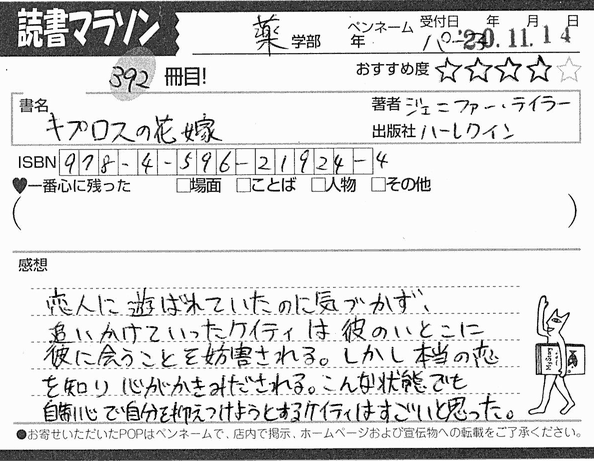 読書マラソン
薬 学部 年 ペンネーム 受付日 年 月 日
'20.11.14
392 冊目! おすすめ度 ★★★★☆
書名 キプロスの花嫁
著者 ジェニファー・テイラー
出版社 ハーレクイン
ISBN 978-4-596-21924-4
♥一番心に残った □場面 □ことば □人物 □その他
( )
感想
恋人に遊ばれていたのに気づかず、
追いかけていったケイティは彼のいとこに
彼に会うことを妨害される。しかし本当の恋
を知り心がかきみだされる。こんな状態でも
自制心で自分を抑えつけようとするケイティはすごいと思った。
●お寄せいただいたPOPはペンネームで、店内で掲示、ホームページおよび宣伝物への転載をご了承ください。